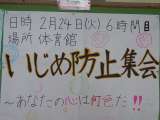 日時 2月24日(火)6時間目
場所 体育館
いじめ防止集会
～あなたの心は何色だ!!